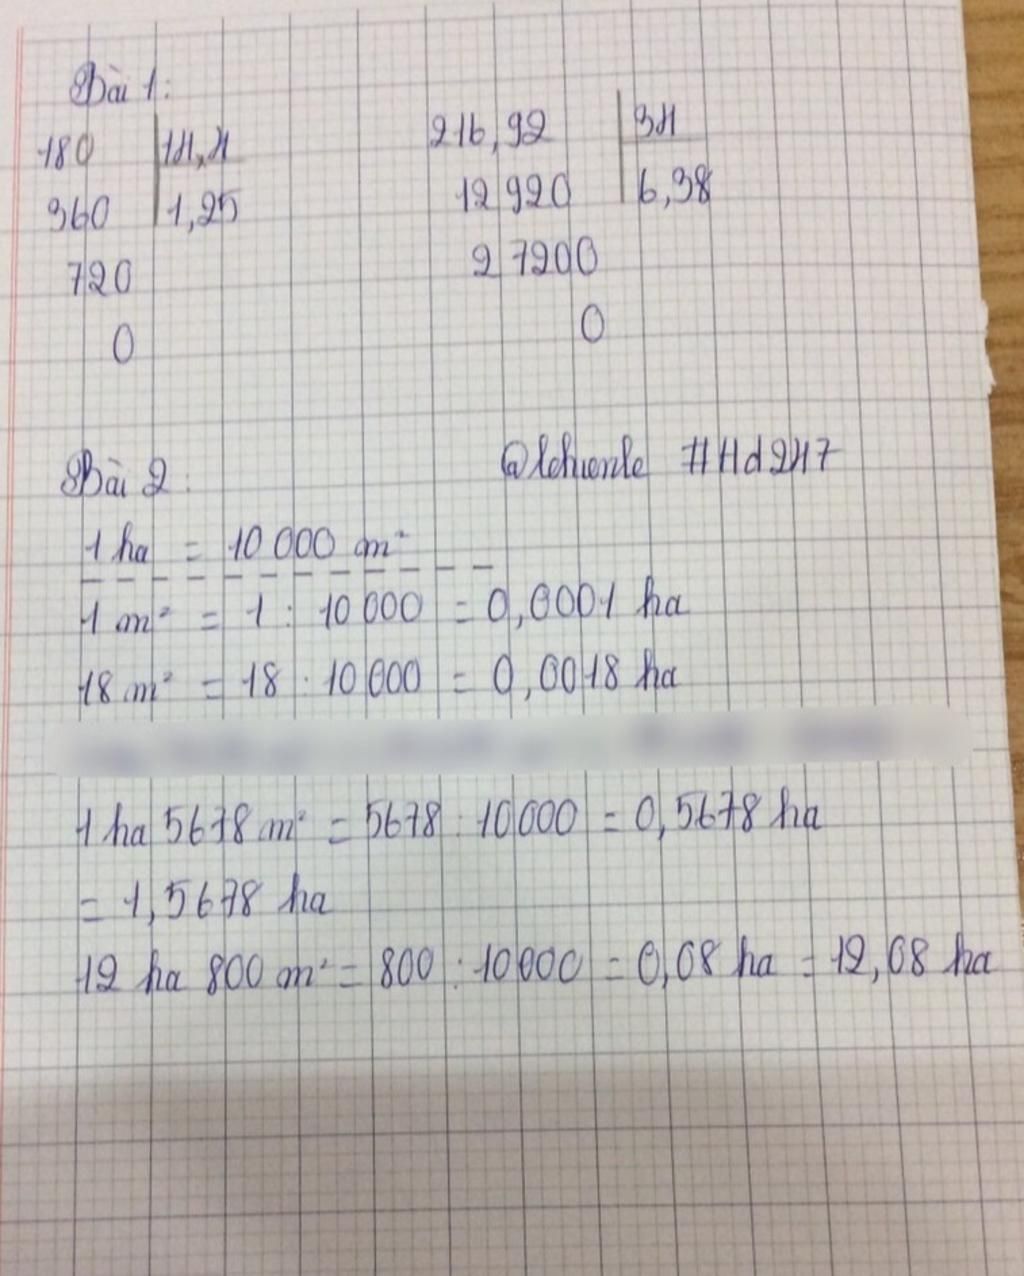 Bài 1:
180 14,4
360 1,25
720
0
216,92 34
12 920 6,38
2 7200
0
Bài 2: @lchienle #Hd247
1 ha = 10 000 m²
1 m² = 1 : 10 000 = 0,0001 ha
18 m² = 18 : 10 000 = 0,0018 ha
1 ha 5678 m² = 5678 : 10 000 = 0,5678 ha
= 1,5678 ha
12 ha 800 m² = 800 : 10 000 = 0,08 ha = 12,08 ha